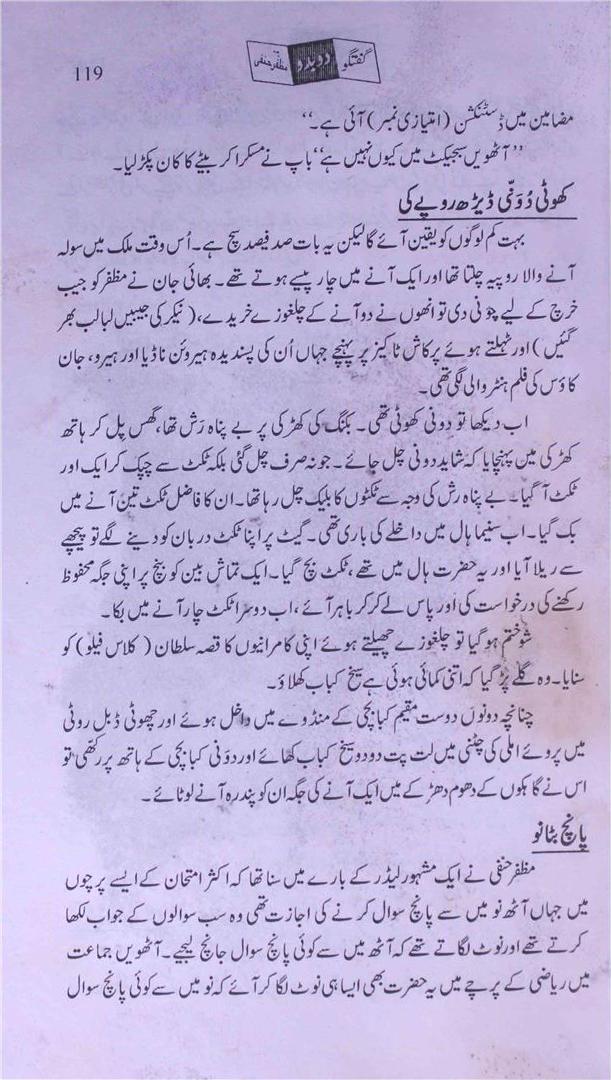 119
گفتگو دوبدو مظفر حنفی
مضامین میں ڈسٹنکشن (امتیازی نمبر) آئی ہے۔‘‘
’’آٹھویں سبجیکٹ میں کیوں نہیں ہے‘‘ باپ نے مسکرا کر بیٹے کا کان پکڑ لیا۔
کھوٹی دُونّی ڈیڑھ روپے کی
بہت کم لوگوں کو یقین آئے گا لیکن یہ بات صد فیصد سچ ہے۔ اُس وقت ملک میں سولہ
آنے والا روپیہ چلتا تھا اور ایک آنے میں چار پیسے ہوتے تھے۔ بھائی جان نے مظفر کو جیب
خرچ کے لیے چونی دی تو انھوں نے دو آنے کے چلغوزے خریدے، (نیکر کی جیبیں لبالب بھر
گئیں) اور ٹہلتے ہوئے پرکاش ٹاکیز پر پہنچے جہاں اُن کی پسندیدہ ہیروئن ناڈیا اور ہیرو، جان
کاؤس کی فلم ہنٹر والی لگی تھی۔
اب دیکھا تو دونی کھوٹی تھی۔ بکنگ کی کھڑکی پر بے پناہ رَش تھا، گھس پل کر ہاتھ
کھڑکی میں پہنچایا کہ شاید دونی چل جائے۔ جو نہ صرف چل گئی بلکہ ٹکٹ سے چپک کر ایک اور
ٹکٹ آ گیا۔ بے پناہ رش کی وجہ سے ٹکٹوں کا بلیک چل رہا تھا۔ ان کا فاضل ٹکٹ تین آنے میں
بک گیا۔ اب سنیما ہال میں داخلے کی باری تھی۔ گیٹ پر اپنا ٹکٹ دربان کو دینے لگے تو پیچھے
سے ریلا آیا اور یہ حضرت ہال میں تھے، ٹکٹ بچ گیا۔ ایک تماش بین کو بنچ پر اپنی جگہ محفوظ
رکھنے کی درخواست کی اور پاس لے کر کر باہر آئے، اب دوسرا ٹکٹ چار آنے میں بکا۔
شو ختم ہو گیا تو چلغوزے چھیلتے ہوئے اپنی کامرانیوں کا قصہ سلطان (کلاس فیلو) کو
سنایا۔ وہ گلے پڑ گیا کہ اتنی کمائی ہوئی ہے سیخ کباب کھلاؤ۔
چنانچہ دونوں دوست مقیم کبابچی کے منڈوے میں داخل ہوئے اور چھوٹی ڈبل روٹی
میں پروئے املی کی چٹنی میں لت پت دو دو سیخ کباب کھائے اور دوَنی کبابچی کے ہاتھ پر رکھّی تو
اس نے گاہکوں کے دھوم دھڑکے میں ایک آنے کی جگہ ان کو پندرہ آنے لوٹائے۔
پانچ بٹا نو
مظفر حنفی نے ایک مشہور لیڈر کے بارے میں سنا تھا کہ اکثر امتحان کے ایسے پرچوں
میں جہاں آٹھ نو میں سے پانچ سوال کرنے کی اجازت تھی وہ سب سوالوں کے جواب لکھا
کرتے تھے اور نوٹ لگاتے تھے کہ آٹھ میں سے کوئی پانچ سوال جانچ لیجیے۔ آٹھویں جماعت
میں ریاضی کے پرچے میں یہ حضرت بھی ایسا ہی نوٹ لگا کر آئے کہ نو میں سے کوئی پانچ سوال